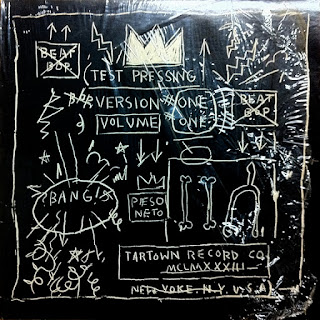 BEAT
BOP
TEST PRESSING
VERSION #ONE
BEAT
BOP
VOLUME ONE
BANG!
PESO
NETO
TARTOWN RECORD CO.
MCLMXXXIII
NEW N.Y. U.S.A